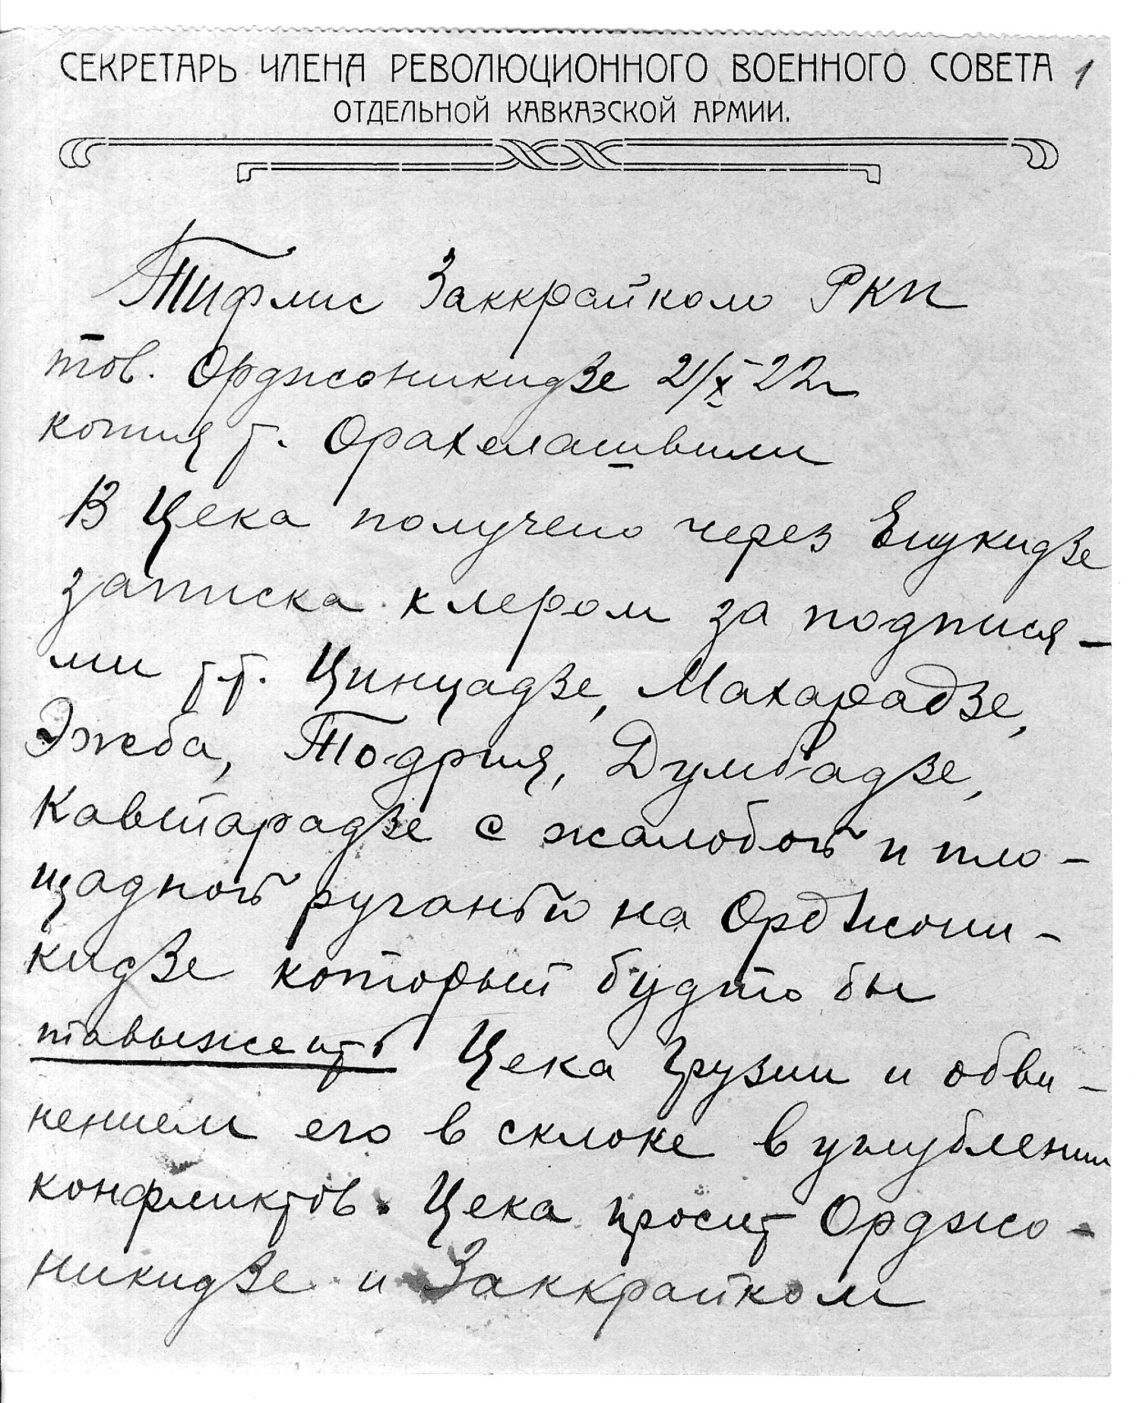 СЕКРЕТАРЬ ЧЛЕНА РЕВОЛЮЦИОННОГО ВОЕННОГО СОВЕТА 1
ОТДЕЛЬНОЙ КАВКАЗСКОЙ АРМИИ.
Тифлис Заккрайком РКП
тов. Орджоникидзе 21/X-22г
копия т. Орахелашвили
В Цека получено через Енукидзе
записка клером за подпися-
ми т.т. Цинцадзе, Махарадзе,
Эжба, Тодрия, Думбадзе,
Кавтарадзе с жалобой и пло-
щадной руганью на Орджони-
кидзе который будто бы
Цека Грузии и обви-
нением его в склоке в углублении
конфликтов. Цека просит Орджо-
никидзе и Заккрайком